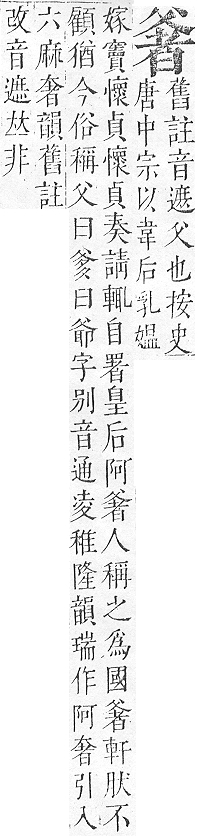 㸙
舊註音遮父也按史
唐中宗以韋后乳媼
嫁竇懷貞懷貞奏請輒自署皇后阿㸙人稱之爲國㸙軒肰不
顧猶今俗稱父曰爹曰爷字别音通凌稚隆韻瑞作阿奢引入
六麻奢韻舊註
改音遮𠀤非